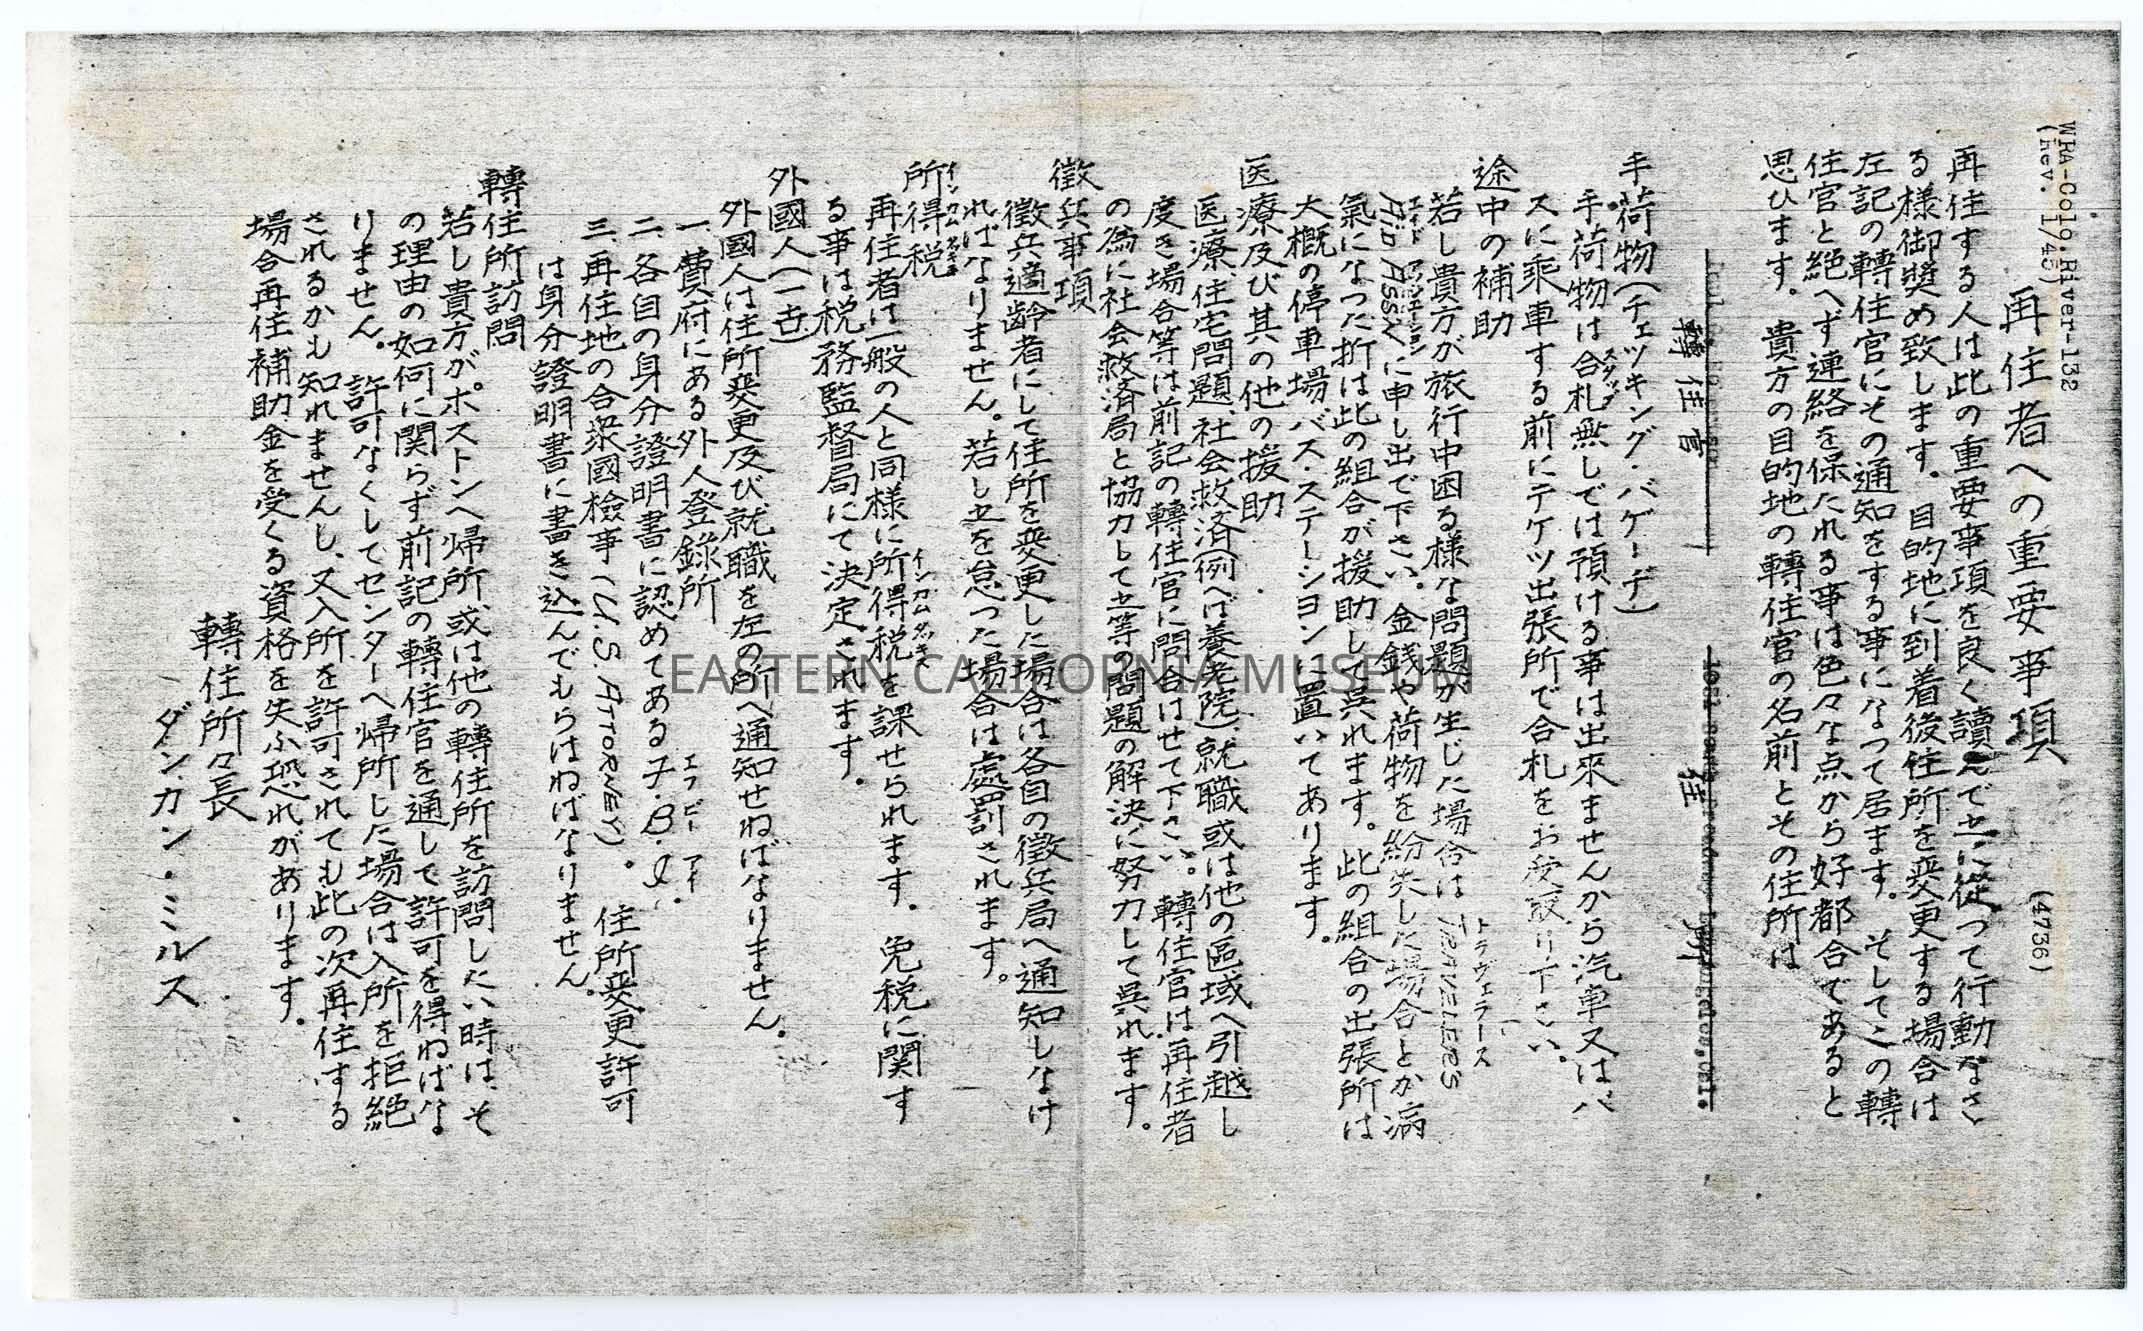 WRA-Colo.River-132
(Rev. 1/45)
(4736)
再住者への重要事項
再住する人は此の重要事項を良く讀んで之に従つて行動なさ
る様御奨め致します。目的地に到着後住所を変更する場合は
左記の轉住官にその通知をする事になつて居ます。そしてこの轉
住官と絶へず連絡を保たれる事は色々な点から好都合であると
思ひます。貴方の目的地の轉住官の名前とその住所は
轉住官
住所
手荷物(チェッキング・バゲーヂ)
手荷物は合札無しでは預ける事は出來ませんから汽車又はバ
スに乘車する前にテケツ出張所で合札をお受取り下さい。
途中の補助
若し貴方が旅行中困る様な問題が生じた場合は TRAVELER'S
トラヴェラース
AID ASSN に申し出で下さい。金銭や荷物を紛失した場合とか病
エイド
氣になつた折は此の組合が援助して呉れます。此の組合の出張所は
大概の停車場バス・ステーションに置いてあります。
医療及び其の他の援助
医療、住宅問題、社会救済(例へば養老院)、就職或は他の區域へ引越し
度き場合等は前記の轉住官に問合はせて下さい。轉住官は再住者
の為に社会救済局と協力して之等の問題の解決に努力して呉れます。
徴兵事項
徴兵適齢者にして住所を変更した場合は各自の徴兵局へ通知しなけ
ればなりません。若し之を怠つた場合は處罰されます。
所得税
インカムタキス
再住者は一般の人と同様に所得税を課せられます。免税に関す
インカムタキス
る事は税務監督局にて決定されます。
外國人(一世)
外國人は住所変更及び就職を左の所へ通知せねばなりません。
一、費府にある外人登録所
二、各自の身分證明書に認めてあるF.B.I.
エフ ビー アイ
三、再住地の合衆國檢事(U.S. ATTORNEY)。住所変更許可
は身分證明書に書き込んでもらはねばなりません。
轉住所訪問
若し貴方がポストンへ帰所或は他の轉住所を訪問したい時は、そ
の理由の如何に関らず前記の轉住官を通して許可を得ねばな
りません。許可なくしてセンターへ帰所した場合は入所を拒絶
されるかも知れませんし、又入所を許可されても此の次再住する
場合再住補助金を受くる資格を失ふ恐れがあります。
轉住所々長
ダンカン・ミルス
EASTERN CALIFORNIA MUSEUM